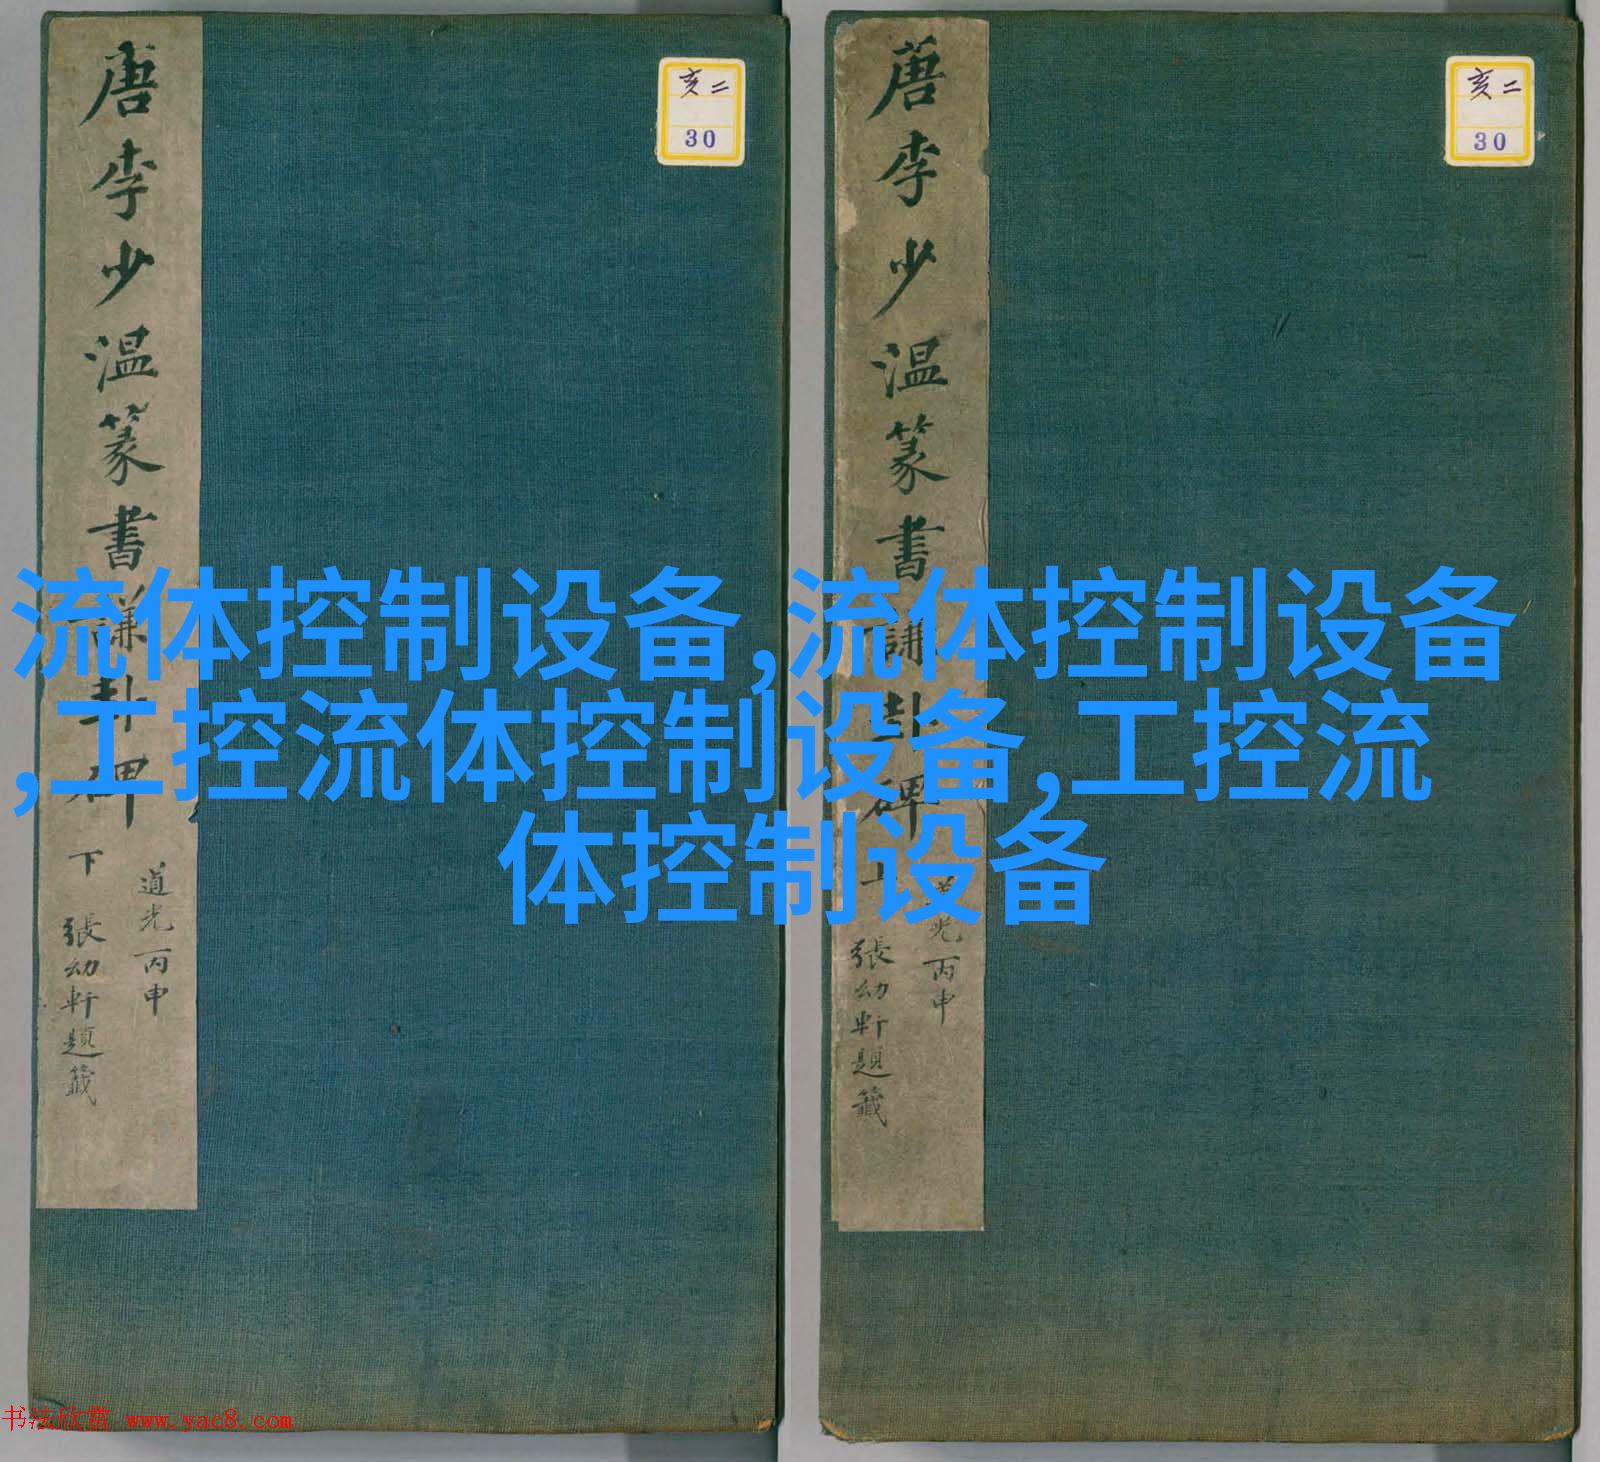 唐李少温篆書謙卦碑 下
道光丙申
張幼軒題籤
亥二
30
唐李少温篆書謙卦碑 上
道光丙申
張幼軒題籤
亥二
30
流体控制设备,流体控制设备
,工控流体控制设备,工控流
体控制设备
书法欣赏 www.yac8.com